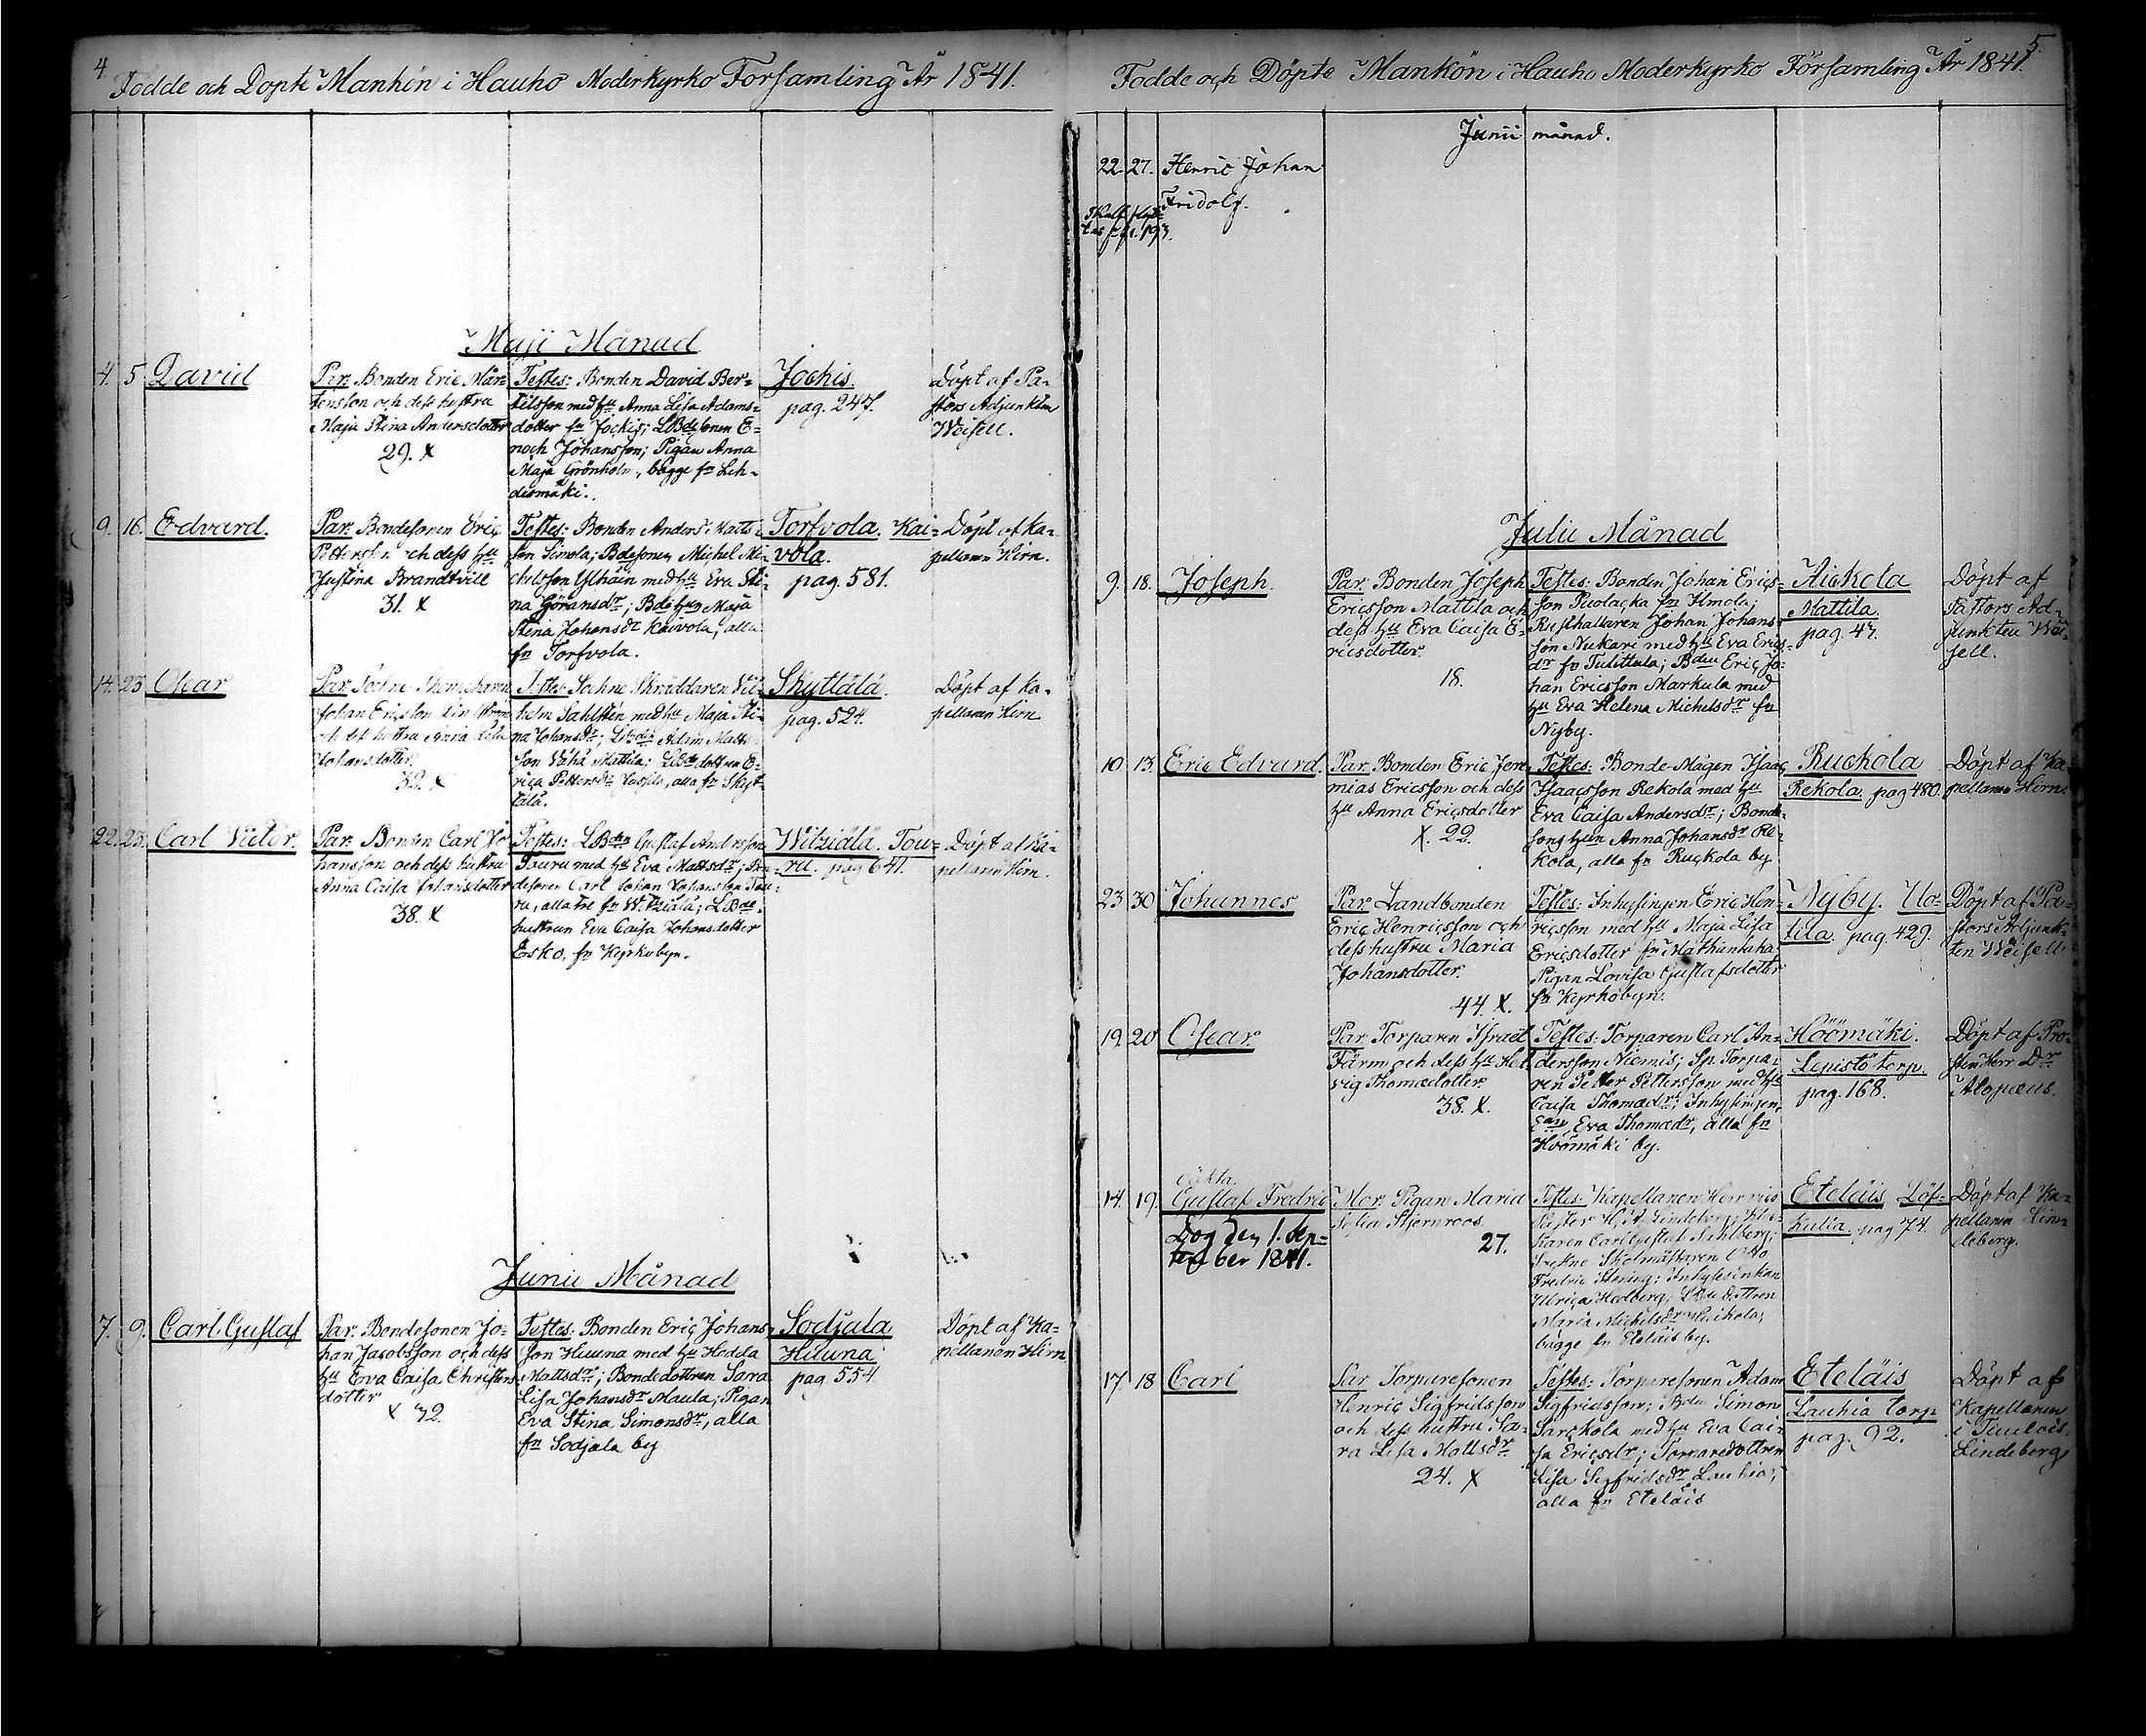 4.
Födde och Döpte Mankön i Hauho Moderkyrko Församling År 1841.
Maji Månad
4. 5 David
Par. Bonden Eric Mår=
tensson och dess hustru
Maja Stina Andersdotter
29. X
Testes: Bonden David Ber=
tilsson med hu Anna Lisa Adams=
dotter fn Jockis; LBdesonen E=
noch Johansson; Pigan Anna
Maja Grönholm, bägge fn Leh=
desmäki.
Jockis.
pag. 247.
Döpt af Pa=
stors Adjunkten
Weisell.
9. 16. Edvard.
Par. Bondesonen Eric
Pettersson och dess hu
Justina Brandtvill
31. X
Testes: Bonden Anders Matts=
son Simola; Bdesonen Michel Mi=
chelsson Ylhäin med hu Eva Sti=
na Göransdr; Bdehun Maja
Stina Johansdr Kaivola, alla
fn Torfvola.
Torfvola. Kai=
vola.
pag. 581.
Döpt af Ka=
pellanen Hirn.
14. 23 Oscar
Par. Sockne Skomakaren
Johan Ericsson
och dess hustru Anna Lisa
Johansdotter.
32. X
Testes: Sockne Skräddaren Vil=
helm Sahlstén med hu Maja Sti=
na Johansdr; LBden Adam Matts=
son Vähä Mattila; LBdedottren E=
rica Pettersdr Jussila, alla fn Skyt=
tälä.
Skyttälä.
pag. 524.
Döpt af Ka=
pellanen Hirn
22. 23. Carl Victor.
Par. Bonden Carl Jo
hansson och dess hustru
Anna Caisa Johansdotter
38. X
Testes: LBden Gustaf Andersson
Tauru med hu Eva Mattsdr; Bon=
desonen Carl Johan Johansson Tou=
ru, alla tre fn Witziälä; LBde=
hustrun Eva Caisa Johansdotter
Esko, fn Kyrkobyn.
Witziälä. Tou=
ru. pag 641.
Döpt af Ka=
pellanen Hirn.
Junii Månad
7. 9. Carl Gustaf
Par. Bondesonen Jo=
han Jacobsson och dess
hu Eva Caisa Christers
dotter
X 42.
Testes: Bonden Eric Johans
son Huuna med hu Hedda
Mattsdr; Bondedottren Sara
Lisa Johansdr Maula; Pigan
Eva Stina Simonsdr, alla
fn Sodjala by
Sodjala
Huuna
pag 554
Döpt af Ka=
pellanen Hirn
5.
Födde och Döpte Mankön i Hauho Moderkyrko Församling År 1841.
Junii månad.
22. 27. Henric Johan
Fridolf.
Julii Månad
9. 18. Joseph
Par. Bonden Joseph
Ericsson Mattila och
dess hu Eva Caisa E=
ricsdotter.
18.
Testes: Bonden Johan Erics=
son Puolacka fn Ilmola;
Rusthållaren Johan Johans=
son Nukari med hu Eva Erics=
dr fn Tulittula; Bden Eric Jo=
han Ericsson Markula med
hu Eva Helena Michelsdr fn
Nyby.
Aickola
Mattila.
pag. 47.
Döpt af
Pastors Ad=
junkten Wei=
sell.
10 13. Eric Edvard.
Par. Bonden Eric Jere
mias Ericsson och dess
hu Anna Ericsdotter
X. 22.
Testes: Bonde-Mågen Isaac
Isaacsson Rekola med hu
Eva Caisa Andersdr; Bonde=
sons hun Anna Johansdr Re=
kola, alla fn Ruckola by
Ruckola
Rekola. pag 480.
Döpt af Ka=
pellanen Hirn.
23 30 Johannes
Par. Landbonden
Eric Henricsson och
dess hustru Maria
Johansdotter.
44. X.
Testes: Inhysingen Eric Hen=
ricsson med hu Maja Lisa
Ericsdotter fn Mathunlaha;
Pigan Lovisa Gustafsdotter
fn Kyrkobyn.
Nyby. Uo=
tila. pag. 429.
Döpt af Pa=
stors Adjunk=
ten Weisell.
19. 20 Oscar.
Par. Torparen Israel
Färm och dess hu Hed
vig Thomædotter.
38. X.
Testes: Torparen Carl An=
dersson Niemis; Sp. Torpa=
ren Petter Pettersson med hu
Caisa Thomædr; Inhysingen,
Eva Thomædr, alla fn
Höömäki by.
Höömäki.
Lepistö torp.
pag. 168.
Döpt af Pro=
sten Herr Dr
Alopæus.
14. 19. oäkta.
Gustaf Fredric
Dog den 1. Sep=
tember 1841.
Mor. Pigan Maria
Sofia Stjernroos
27.
Testes: Kapellanen Herr
H. A. Lindeberg;
Carl Gustaf Sahlberg;
Sockne Skolmästaren Otto
Fredric Stening; Inhyseenkan
Ulrica Hedberg; LBde dottren
Maria Michelsdr Uuchola,
bägge fn Eteläis by.
Eteläis Löf=
hulia. pag 74.
Döpt af Ka=
pellanen Lin=
deberg.
17. 18 Carl
Par Torparesonen
Henric Sigfridsson
och dess hustru Sa=
ra Lisa Mattsdr
24. X
Testes: Torparesonen Adam
Sigfridsson; Bden Simon
Sarckola med hu Eva Cai=
sa Ericsdr; Torparedottren
Lisa Sigfridsdr Lauhia,
alla fn Eteläis
Eteläis
Lauhia torp
pag. 92.
Döpt af
Kapellanen
i Tuulois,
Lindeberg